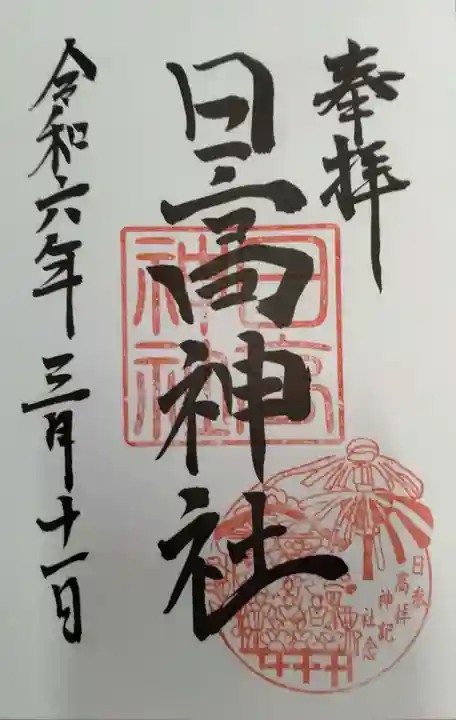 奉拝
日高神社
日高神社
令和六年三月十一日
参拝記念
日高神社